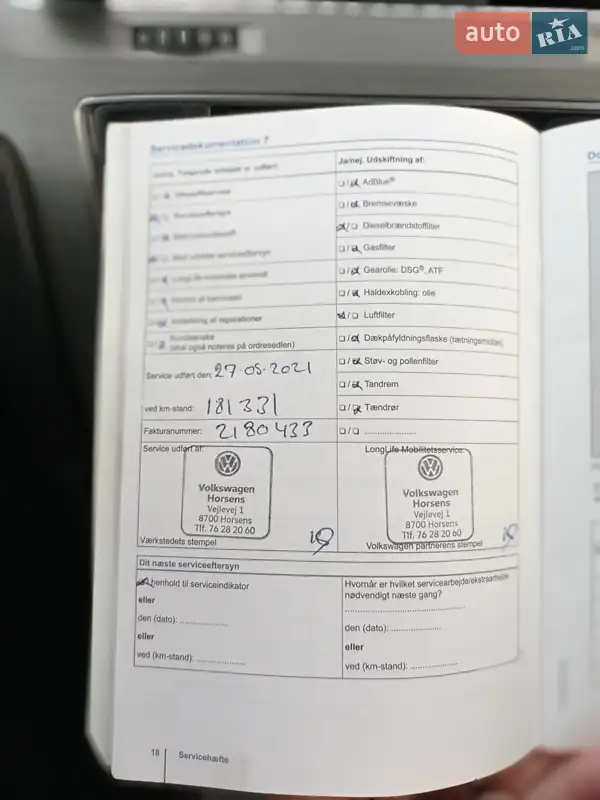 auto RIA .com
Servicedokumentation 7
Ja/nej. Udskiftning af:
☐/☒ AdBlue®
☐/☒ Bremsevæske
☒/☐ Dieselbrændstoffilter
☐/☒ Gasfilter
☐/☒ Gearolie: DSG®, ATF
☐/☒ Haldexkobling: olie
☒/☐ Luftfilter
☐/☒ Dækpåfyldningsflaske (tætningsmiddel)
☐/☒ Støv- og pollenfilter
☐/☒ Tandrem
☐/☒ Tændrør
☐/☐ ....................
Anbefaling af reparationer
(skal også noteres på ordresedlen)
Service udført den: 27-05-2021
ved km-stand: 181331
Fakturanummer: 2180433
Service udført af:
Volkswagen
Horsens
Vejlevej 1
8700 Horsens
Tlf. 76 28 20 60
Værkstedets stempel
LongLife Mobilitetsservice:
Volkswagen
Horsens
Vejlevej 1
8700 Horsens
Tlf. 76 28 20 60
Volkswagen partnerens stempel
Dit næste serviceeftersyn
henhold til serviceindikator
eller
den (dato): ....................
eller
ved (km-stand): ....................
Hvornår er hvilket servicearbejde/ekstraarbejde
nødvendigt næste gang?
den (dato): ....................
eller
ved (km-stand): ....................
18 Servicehæfte